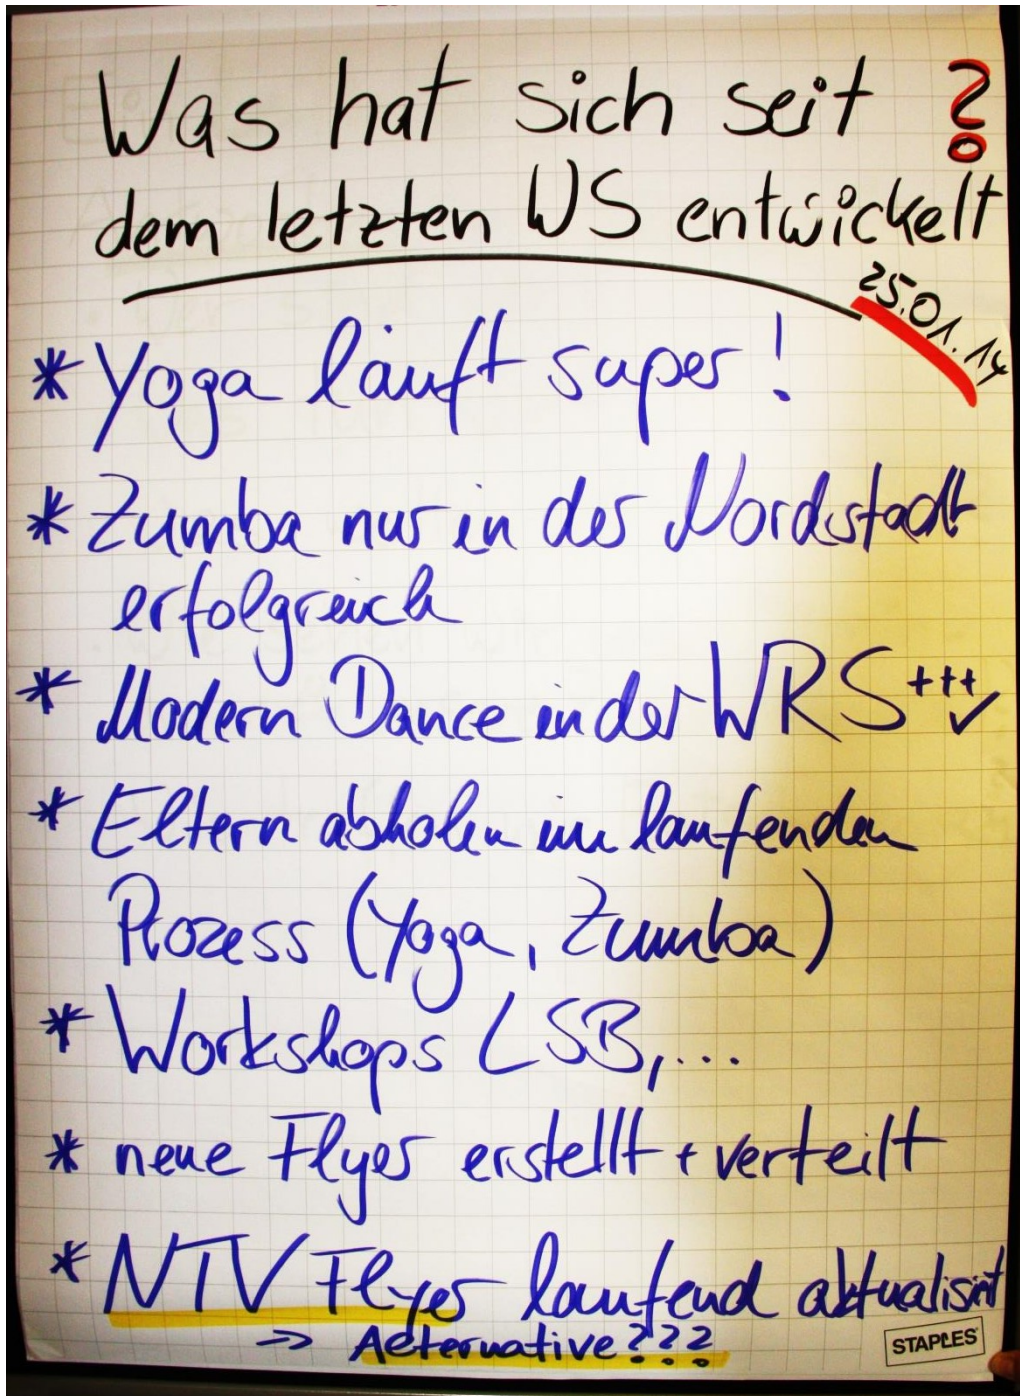 Was hat sich seit ?
dem letzten WS entwickelt
25.01.14
* Yoga läuft super!
* Zumba nur in der Nordstadt
erfolgreich
* Modern Dance in der WRS +++ ✓
* Eltern abholen im laufenden
Prozess (Yoga, Zumba)
* Workshops LSB, ...
* neue Flyer erstellt + verteilt
* NTV Flyer laufend aktualisiert
=> Alternative???
STAPLES